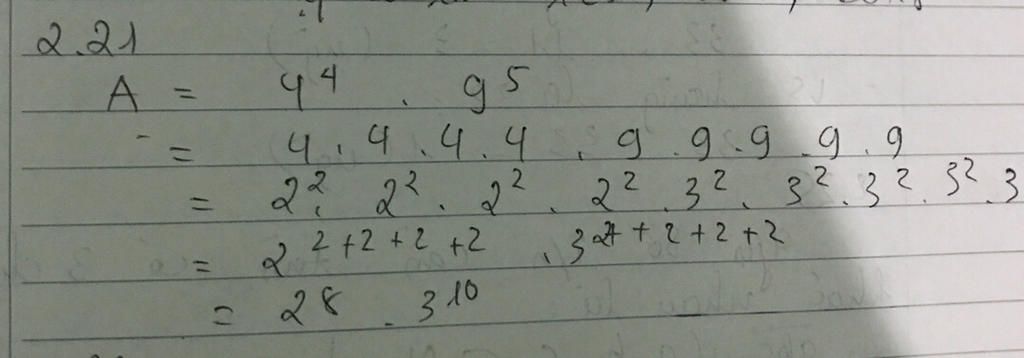 2.21
A = 4⁴ . 9⁵
= 4 . 4 . 4 . 4 . 9 . 9 . 9 . 9 . 9
= 2² . 2² . 2² . 2² . 3² . 3² . 3² . 3² . 3
= 2²⁺²⁺²⁺² . 3²⁺²⁺²⁺²
= 2⁸ . 3¹⁰